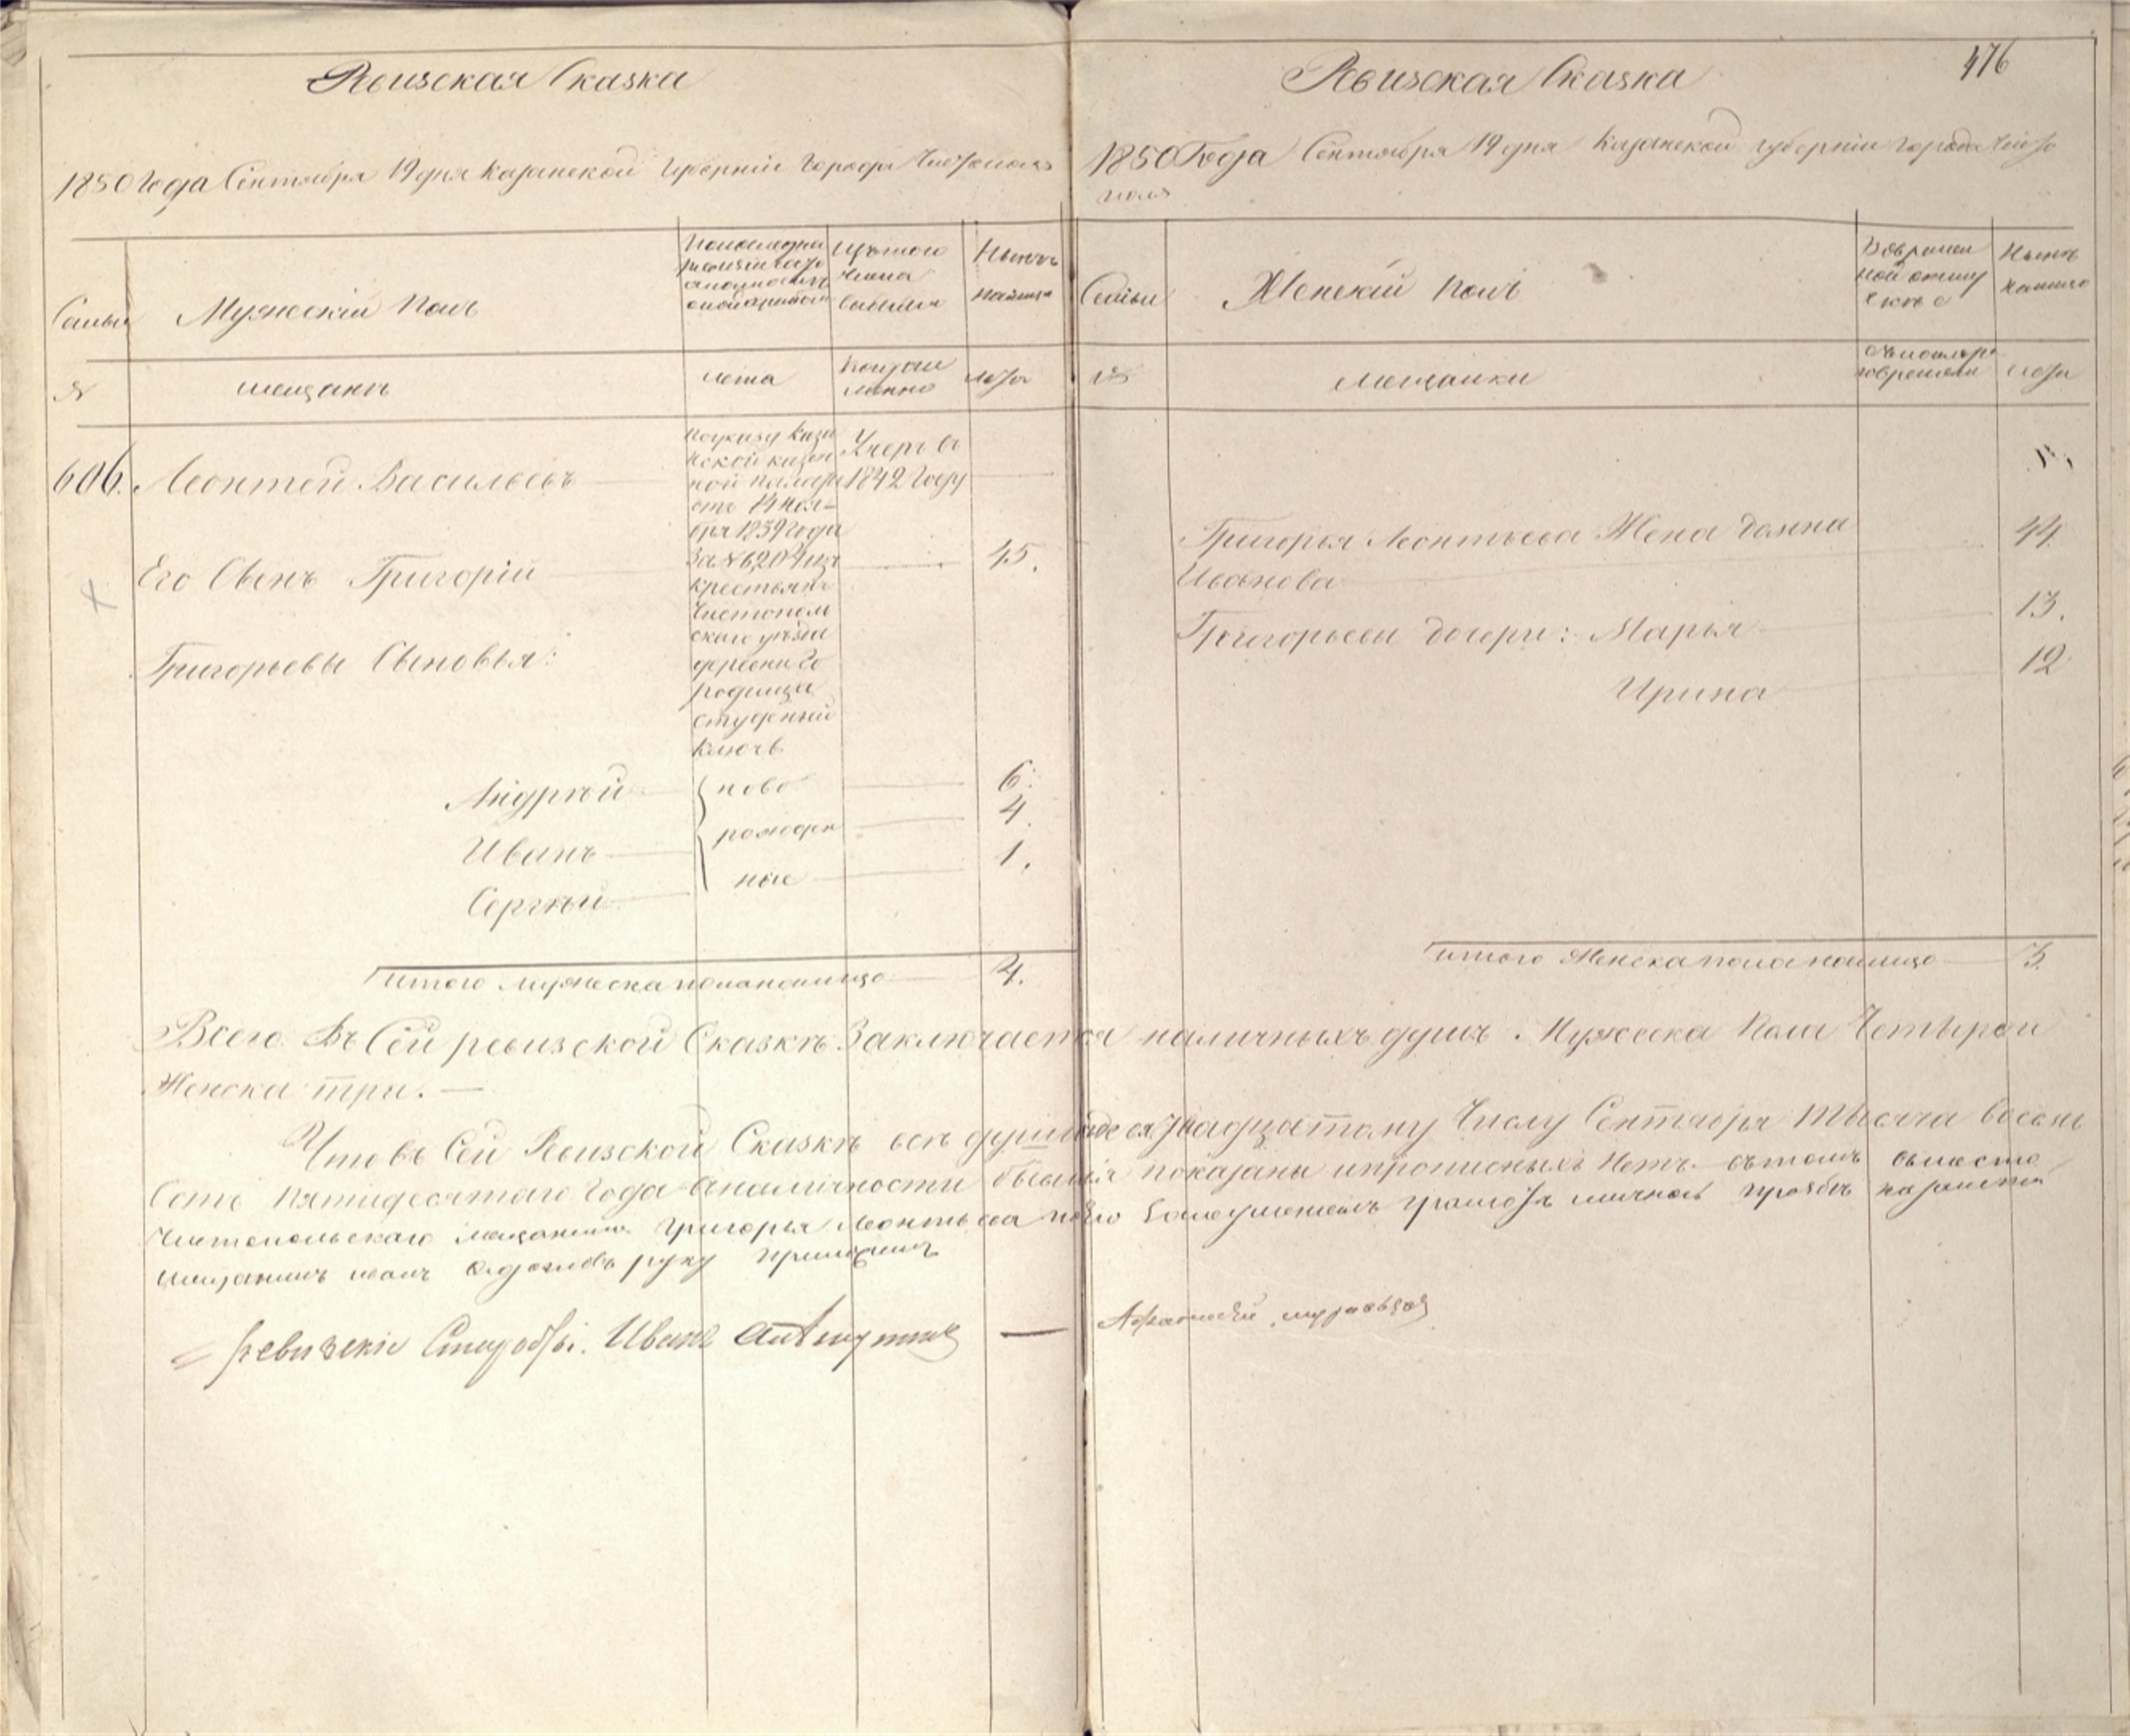 Ревизская Сказка
1850 Года Сентября 19 дня Казанской Губернии Города Чистополя
Семьи
Мужеский Полъ
По последней
ревизии
состояло
и после
Изъ того
числа
выбыло
Ныне
на лицо
№
мещанъ
лета
Когда именно
лета
606.
Леонтей Васильевъ
По указу Казан
ской казен
ной палаты
отъ 14 Ноя-
бря 1839 года
за № 6204 изъ
крестьянъ
Чистополь
скаго уезда
деревни Го
родища
студеный
ключь
Умеръ въ
1842 Году
Его Сынъ Григорій
45.
Григорьевы Сыновья:
Андрей
ново
6.
Иванъ
рожден
4.
Сергѣй
ные
1.
итого мужеска пола на лицо
4.
Ревизская Сказка
476
1850 Года Сентября 19 дня Казанской губерніи Города Чисто
поля
Семьи
Женскій Полъ
Во времен
ной отлу
чкѣ
Ныне
на лицо
№
мещанки
съ котораго
времени
лета
Григорья Леонтьева Жена Домна
Иванова
44.
Григорьевы дочери: Марья
13.
Ирина
12
итого Женска пола на лицо
3.
Всего Въ Сей ревизской Сказкѣ Заключается наличныхъ душъ Мужеска Пола Четыре и
Женска три.
Что въ Сей Ревизской Сказкѣ все души по девятнадцатому Числу Сентября тысяча восемь
Сотъ пятидесятаго Года в наличности бывшія показаны и прописныхъ Нетъ въ томъ вместо
Чистопольскаго мещанина Григорья Леонтьева по его неумению грамоте личной прозбе
мещанинъ руку приложилъ
Ревизские Иванъ